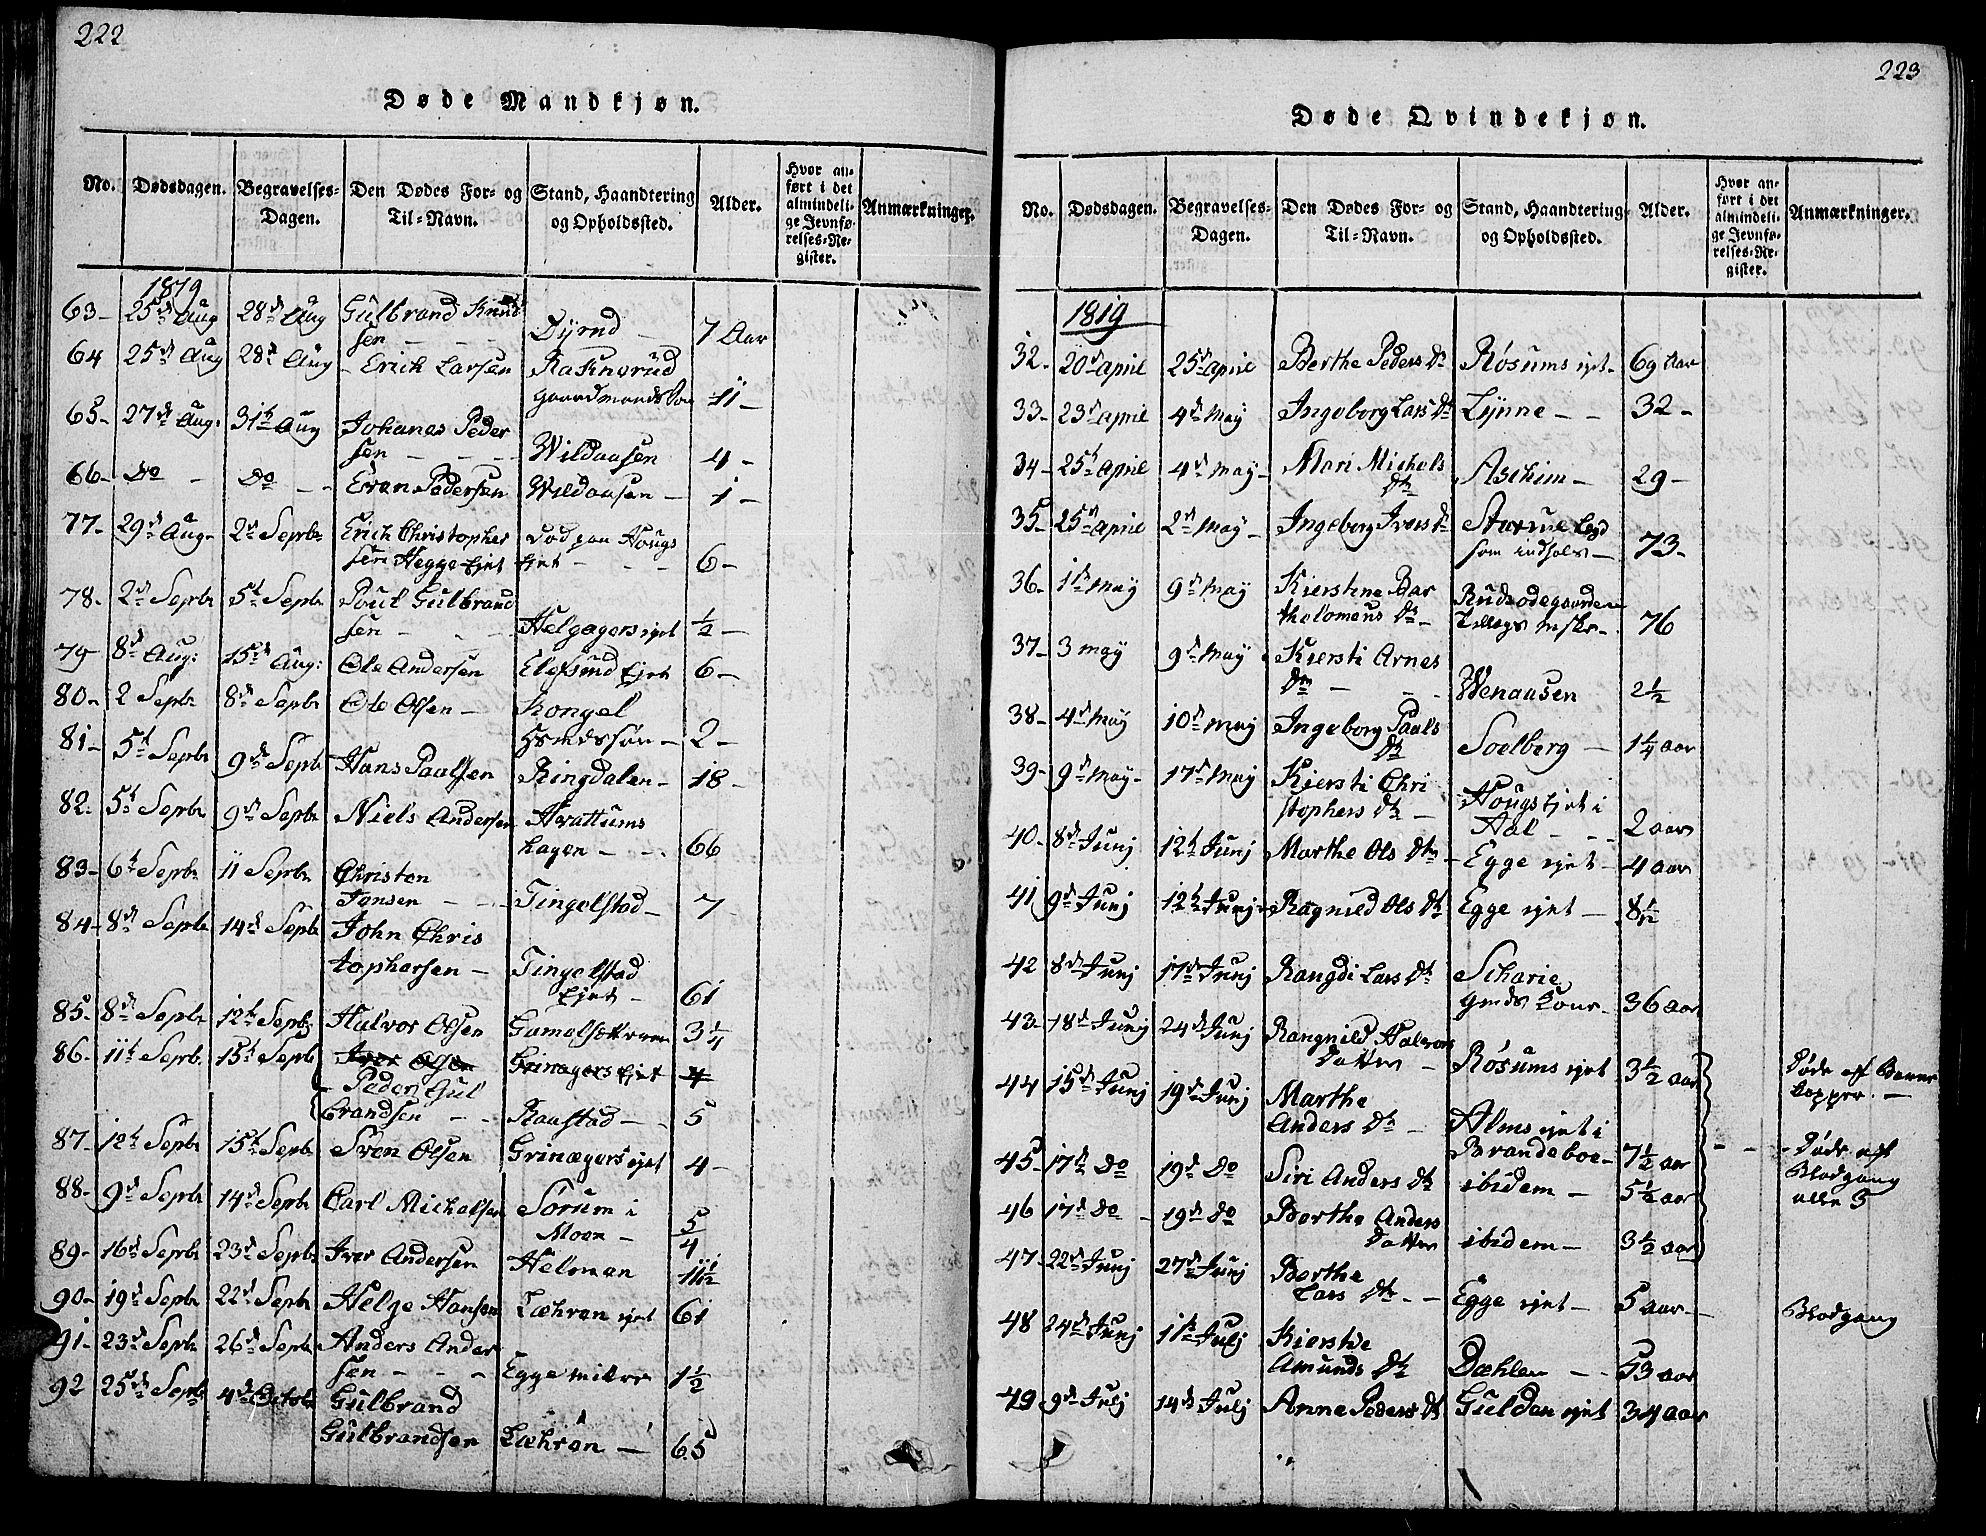 222
Døde Mandkjøn.
No. Dødsdagen. Begravelses-Dagen. Den Dødes For- og Til-Navn. Stand, Haandtering og Opholdssted. Alder. Hvor anført i det almindelige Jevnførelses-Register. Anmærkninger.
1819
63- 25de Aug 28de Aug Gulbrand Knud
sen - - - Dyrnd - 7 Aar
64 25de Aug 28de Aug - Erich Larsen Raknerud
gaardmands Søn 11-
65- 27de Aug. 31te Aug Johanes Peder
sen - - - Wildaasen 4-
66- Do - Do - - Even Pedersen Wildaasen - 1-
77- 29de Aug- 2de Septbr Erich Christopher død paa Hougs
sen Hegge Ejet Ejet - - - 6-
78- 2de Septbr 5te Septbr Poul Gulbrand
sen - - - Helgagers ejet ½-
79 8de Aug: 15de Aug: Ole Andersen Elefsind Ejet 6-
80- 2 Septbr 8de Septbr Ole Olsen - Kongel
2-
81- 5te Septbr 9de Septbr Hans Paalsen Ringdalen - 18-
82- 5te Septbr 9de Septbr Niels Andersen Hvattums
hagen - - - 66
83- 6te Septbr 11 Septbr Christen
Jansen - - - Tingelstad- 7
84- 8de Septbr 14de Septbr John Chris
tophersen - Tingelstad
Ejet - 61
85- 8de Septbr 12te Septbr Halvor Olsen 3¼
86- 11te Septbr 15te Septbr Iver Olsen Grinagers Ejet 4
Peder Gul
brandsen - - Raastad - - 5
87- 12te Septbr 15te Septbr Sven Olsen Grinagers ejet 4-
88- 9de Septbr 14de Septbr Carl Michelsen Sørum i
Moen - 5/4
89- 16de Septbr 23de Septbr Iver Andersen Helmen 11½
90- 19de Septbr 22de Septbr Helge Hansen Læhren ejet 61
91- 23de Septbr 26de Septbr Anders Ander
sen - - - Egge 1½
92 25de Septbr 4de Octobr Gulbrand
Gulbrandsen Læhren - 65
223
Døde Qvindekjøn.
No. Dødsdagen. Begravelses-Dagen. Den Dødes For- og Til-Navn. Stand, Haandtering og Opholdssted. Alder. Hvor anført i det almindelige Jevnførelses-Register. Anmærkninger.
1819
32- 20de april 25de april Berthe Peders Dtr Røsums ejet- 69 Aar
33- 23de april 4de May Ingeborg Lars Dtr Lynne - - 32-
34- 25te april 4de May- Mari Michels
Dtr Aschim - 29-
35- 25te april 2de May- Ingeborg Ivers Dtr
som indholds- 73-
36- 1te May 9de May Kierstine Bar
tholomeus Dtr- 76
37- 3 may 9de May- Kiersti Arnes
Dtr - - - Wenaasen 2½
38- 4de May 10de maj Ingeborg Paals
Dtr Soelberg - 1¼ aar
39- 9de May- 17de Maj Kiersti Chri
stophers Dtr - Hougs Ejet i
Aal - - - 2 aar
40- 8de Junj 12te Junj Marthe Ols Dtr- Egge ejet - 4 aar
41 9de Junj 12te Junj- Ragnild Ols Dtr Egge ejet - 8½
42 8de Junj 17de Junj Rangdi Lars Dtr Scharie
gmds Kone- 36 aar
43- 18de Junj 24de Junj Rangnild Halvors
Datter - Røsums ejet 3½ aar Døde af Børne
kopper. -
44 15de Junj 19de Junj Marthe
Anders Dtr - Alms ejet i
Brandeboe- 7½ aar - - - Døde af
Blodgang
alle 3
45- 17de Do 19de Do Siri Anders Dtr ibidem - 5½ aar
46 17de Do - 19de Do Berthe Anders
Datter ibidem - 3½ aar
47- 22de Junj 27de Junj Berthe
Lars Dtr - - Egge ejet - 5 aar - Blodgang
48 24de Junj 11te Julj Kierstie
Amunds Dtr Dæhlen - - 53 aar
49- 9de Julj 14de Julj Anne Peders Dtr Gulden ejet 34 aar